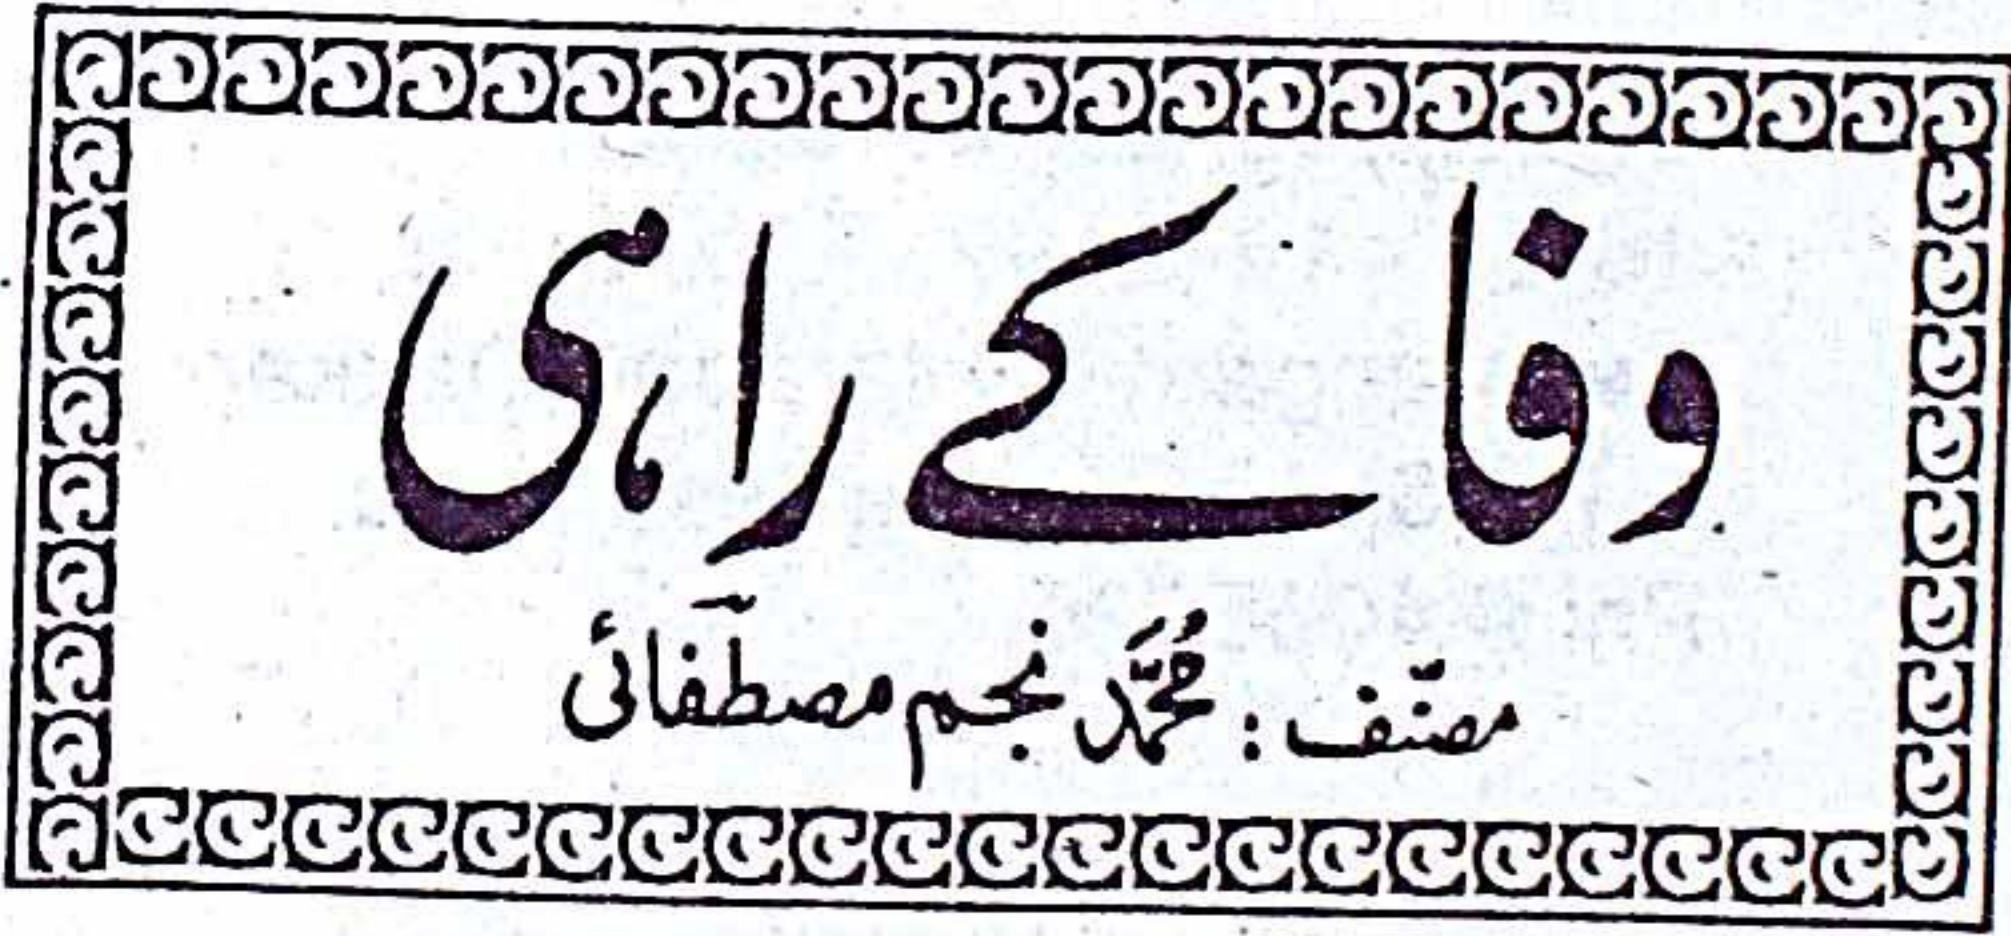 وفا کے راہی
مصنّف : مُحمَّد نجم مصطفائی